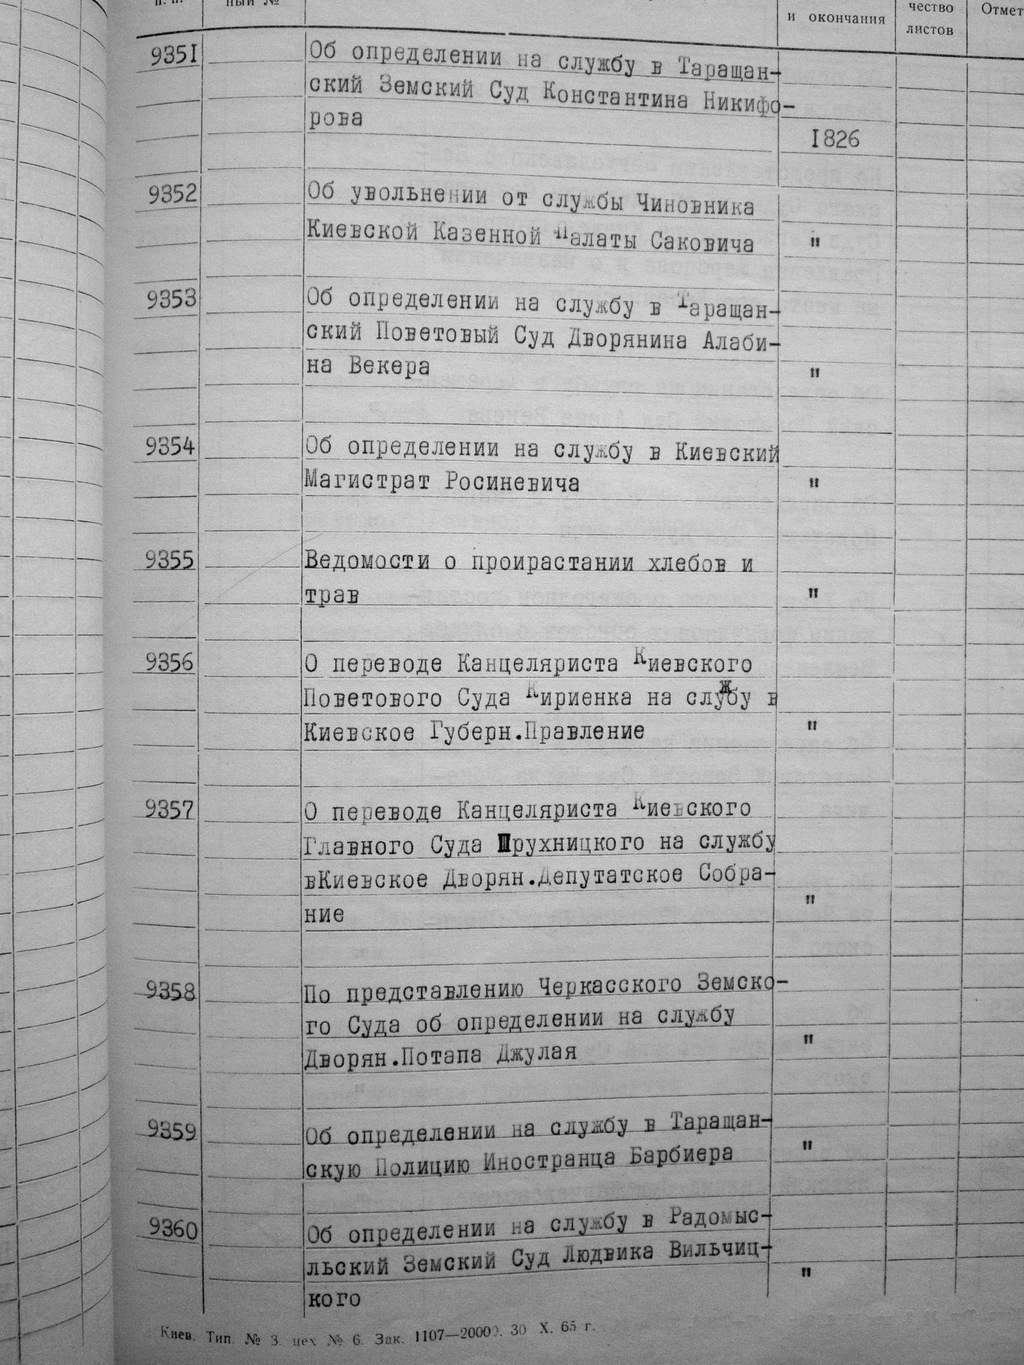 п. п.
ный №
и окончания
чество
листов
Отмет
9351 Об определении на службу в Таращан-
ский Земский Суд Константина Никифо-
рова
1826
9352 Об увольнении от службы Чиновника
Киевской Казенной Палаты Саковича "
9353 Об определении на службу в Таращан-
ский Поветовый Суд Дворянина Алаби-
на Векера "
9354 Об определении на службу в Киевский
Магистрат Росиневича "
9355 Ведомости о проирастании хлебов и
трав "
9356 О переводе Канцеляриста Киевского
Поветового Суда Кириенка на службу в
Киевское Губерн.Правление "
9357 О переводе Канцеляриста Киевского
Главного Суда Прухницкого на службу
вКиевское Дворян.Депутатское Собра-
ние "
9358 По представлению Черкасского Земско-
го Суда об определении на службу
Дворян.Потапа Джулая "
9359 Об определении на службу в Таращан-
скую Полицию Иностранца Барбиера "
9360 Об определении на службу в Радомыс-
льский Земский Суд Людвика Вильчиц-
кого "
Киев. Тип. № 3. цех № 6. Зак. 1107—20000. 30 X. 65 г.